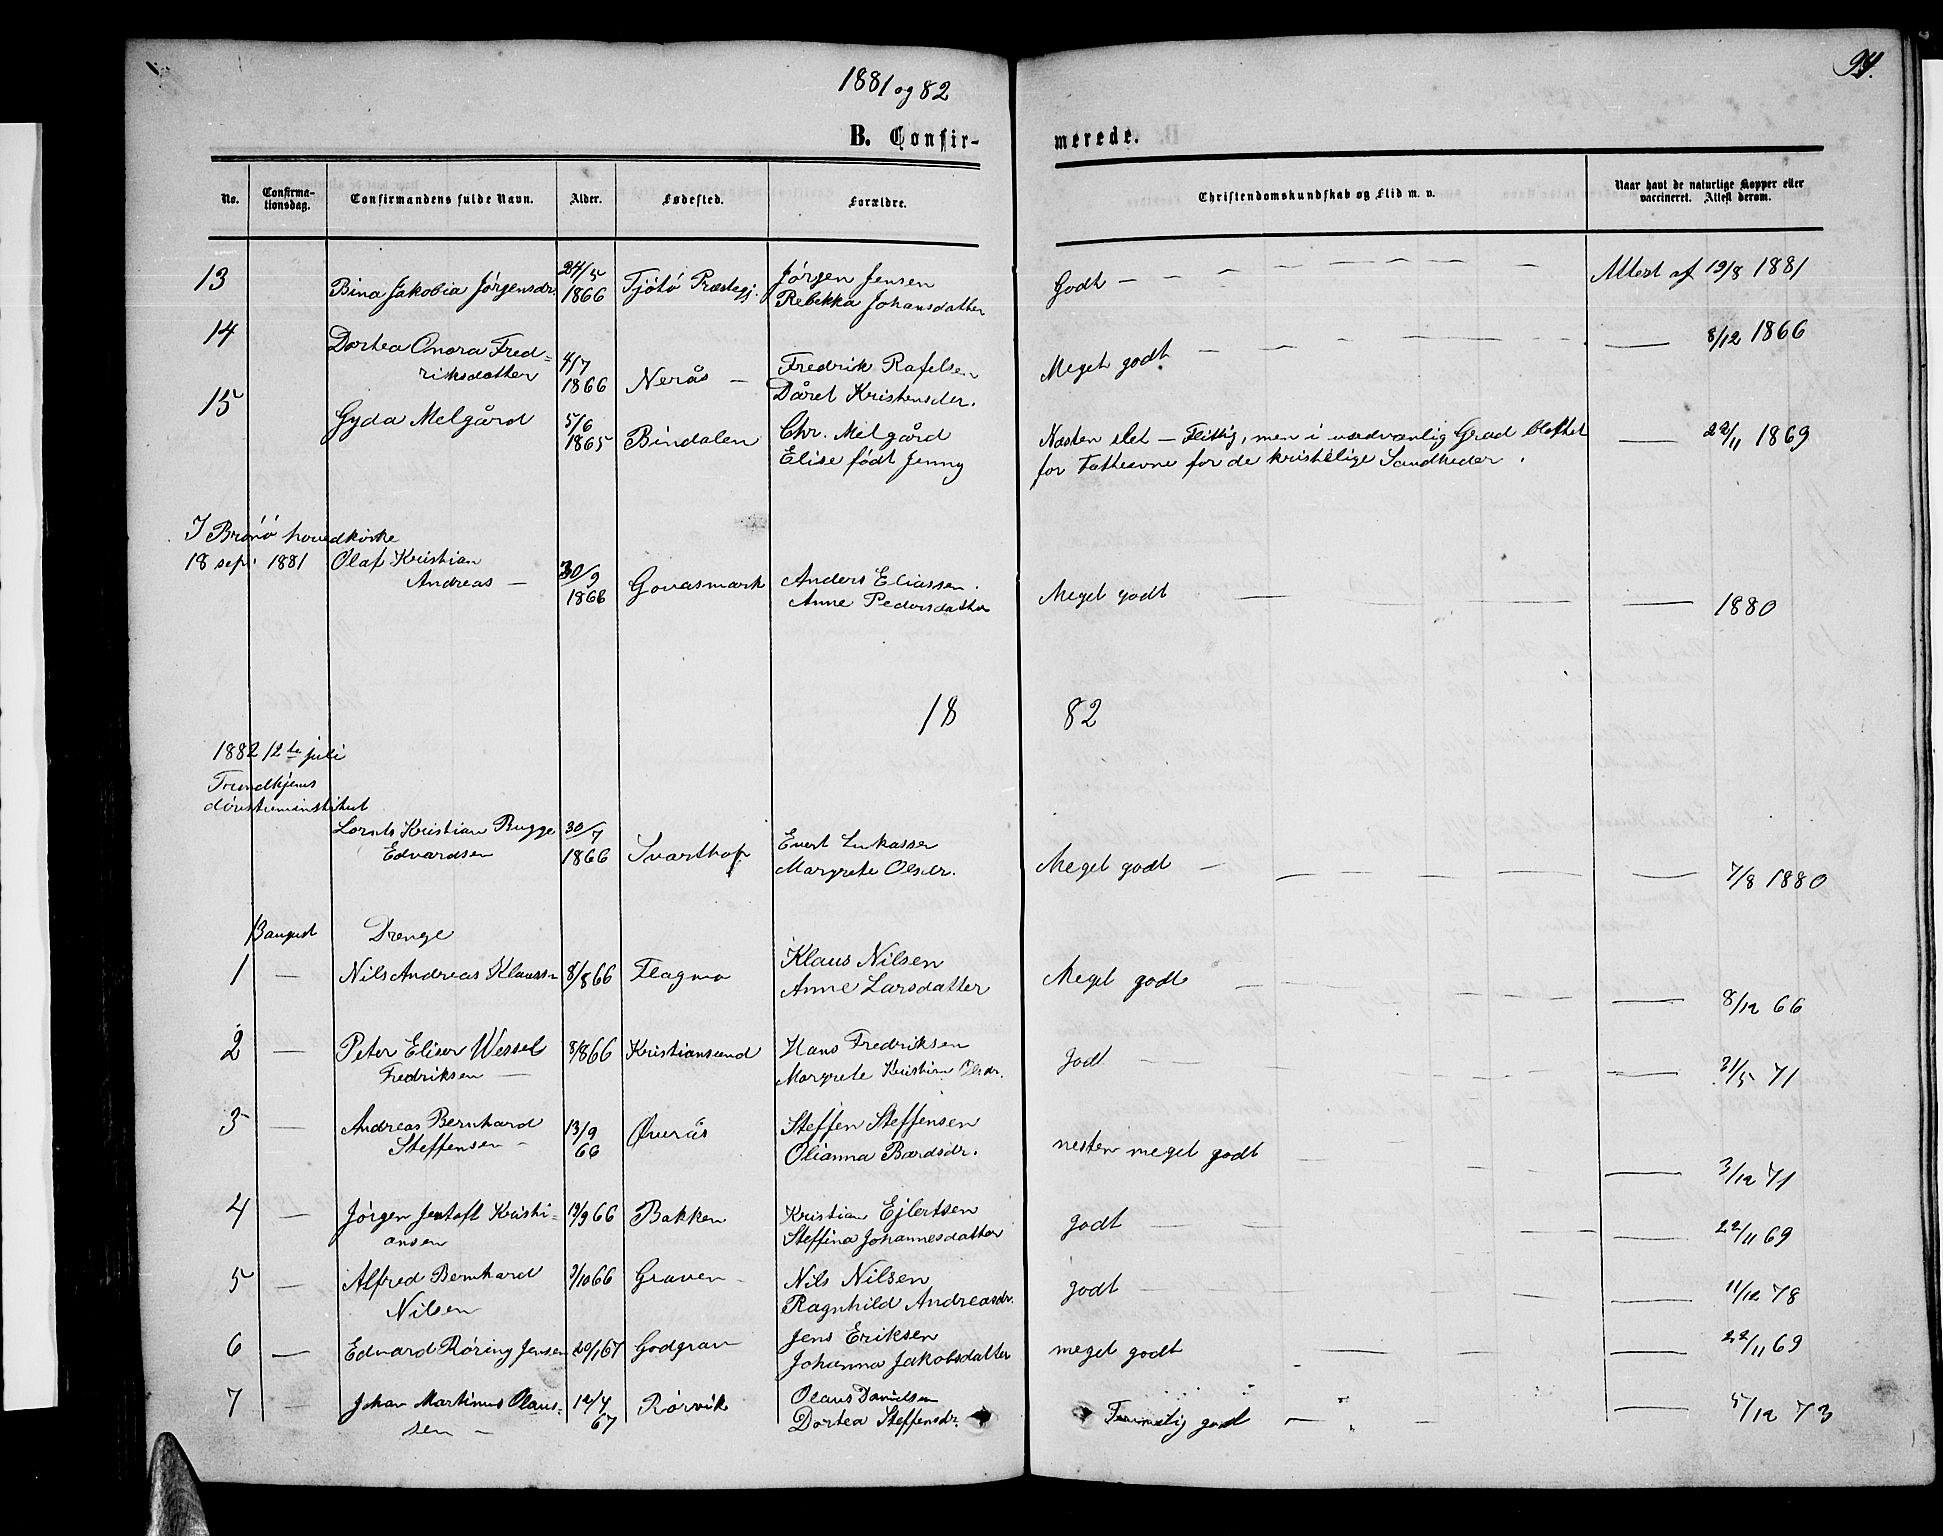 94.
1881 og 82
B. Confirmerede.
No. Confirmationsdag. Confirmandens fulde Navn. Alder. Fødested. Forældre. Christendomskundskab og Flid m. v. Naar havt de naturlige Kopper eller vaccineret. Attest derom.
13 Bina Jakobia Jørgensdr. 24/5 1866 Tjøtø Præstegj. Jørgen Jensen
Rebekka Johansdatter Godt — Attest af 19/8 1881
14 Dortea Onora Fred=
riksdatter 4/7 1866 Nerås — Fredrik Rafelsen
Dåret Kristensdr. Meget godt — 8/12 1866
15 Gyda Melgård 5/6 1865 Bindalen Chr. Melgård
Elise født Jenny Næsten slet — Flittig, men i usedvanlig Grad bløttet
for Fatteevne for de kristelige Sandheder. — 22/11 1869
I Brønø hovedkirke
18 sept 1881 Olaf Kristian
Andreas — 30/9 1866 Govasmark Anders Eliassen
Anne Pedersdatter Meget godt — 1880
1882
1882 12te juli
Trondhjems
døvstuminstitut
Lornts Kristian Bugge
Edvardsen 30/7 1866 Svarthop Evert Lukassen
Margrete Olsdr. Meget godt — 7/8 1880
13 august Drenge
1 — Nils Andreas Klaussn 8/8 66 Flagmo Klaus Nilsen
Anne Larsdatter Meget godt — 8/12 66
2 — Peter Eliser Wessel
Fredriksen — 8/8 66 Kristiansund Hans Fredriksen
Margrete Kristine Olsdr. godt — 31/5 71
3 — Andreas Bernhard
Steffensen — 13/9 66 Øverås Steffen Steffensen
Olianna Bardsdr. nesten meget godt — 3/12 71
4 — Jørgen Jentoft Kristi=
ansen 19/9 66 Bakken Kristian Ejlertsen
Steffina Johannesdatter godt — 22/11 69
5 — Alfred Bernhard
Nilsen 9/10 66 Graven — Nils Nilsen
Ragnhild Andreasdr. godt — 11/12 78
6 — Edvard Røring Jensen 20/1 67 Godgrav Jens Eriksen
Johanna Jakobsdatter meget godt — 22/11 69
7 — Johan Martinus Olaus=
sen — 12/4 67 Rørvik Olaus Danielsen
Dortea Steffensdr. Temmelig godt — 5/12 73